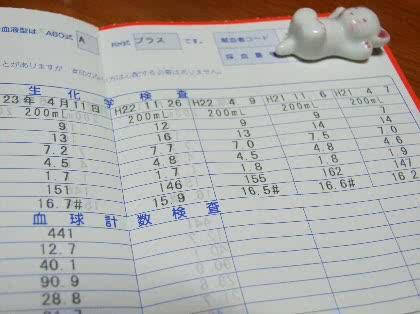 血液型は ABO式 A Rh式 プラス です。 献血者コード
採血量
とがありますが
生化学検査
23年 4月11日 H22 11 26 H22 4 9 H21 11 6 H21 4 7
200mL 200mL 200mL 200mL 200mL
9 12 9 9 9
13 16 13 14 14
7.2 7.7 7.0 7.5 7.0
4.5 4.8 4.5 4.8 4.6
1.7 1.7 1.8 1.8 1.9
151 146 155 162 141
16.7# 15.9 16.5# 16.6# 16.2
血球計数検査
441
12.7
40.1
90.9
28.8